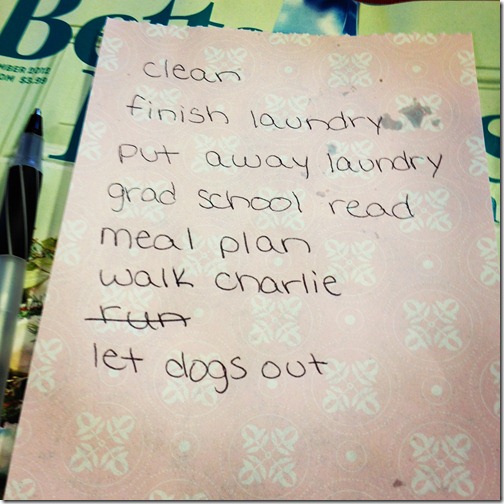 Bett
MBER 2012
OM $3.99
clean
finish laundry
put away laundry
grad school read
meal plan
walk charlie
run
let dogs out